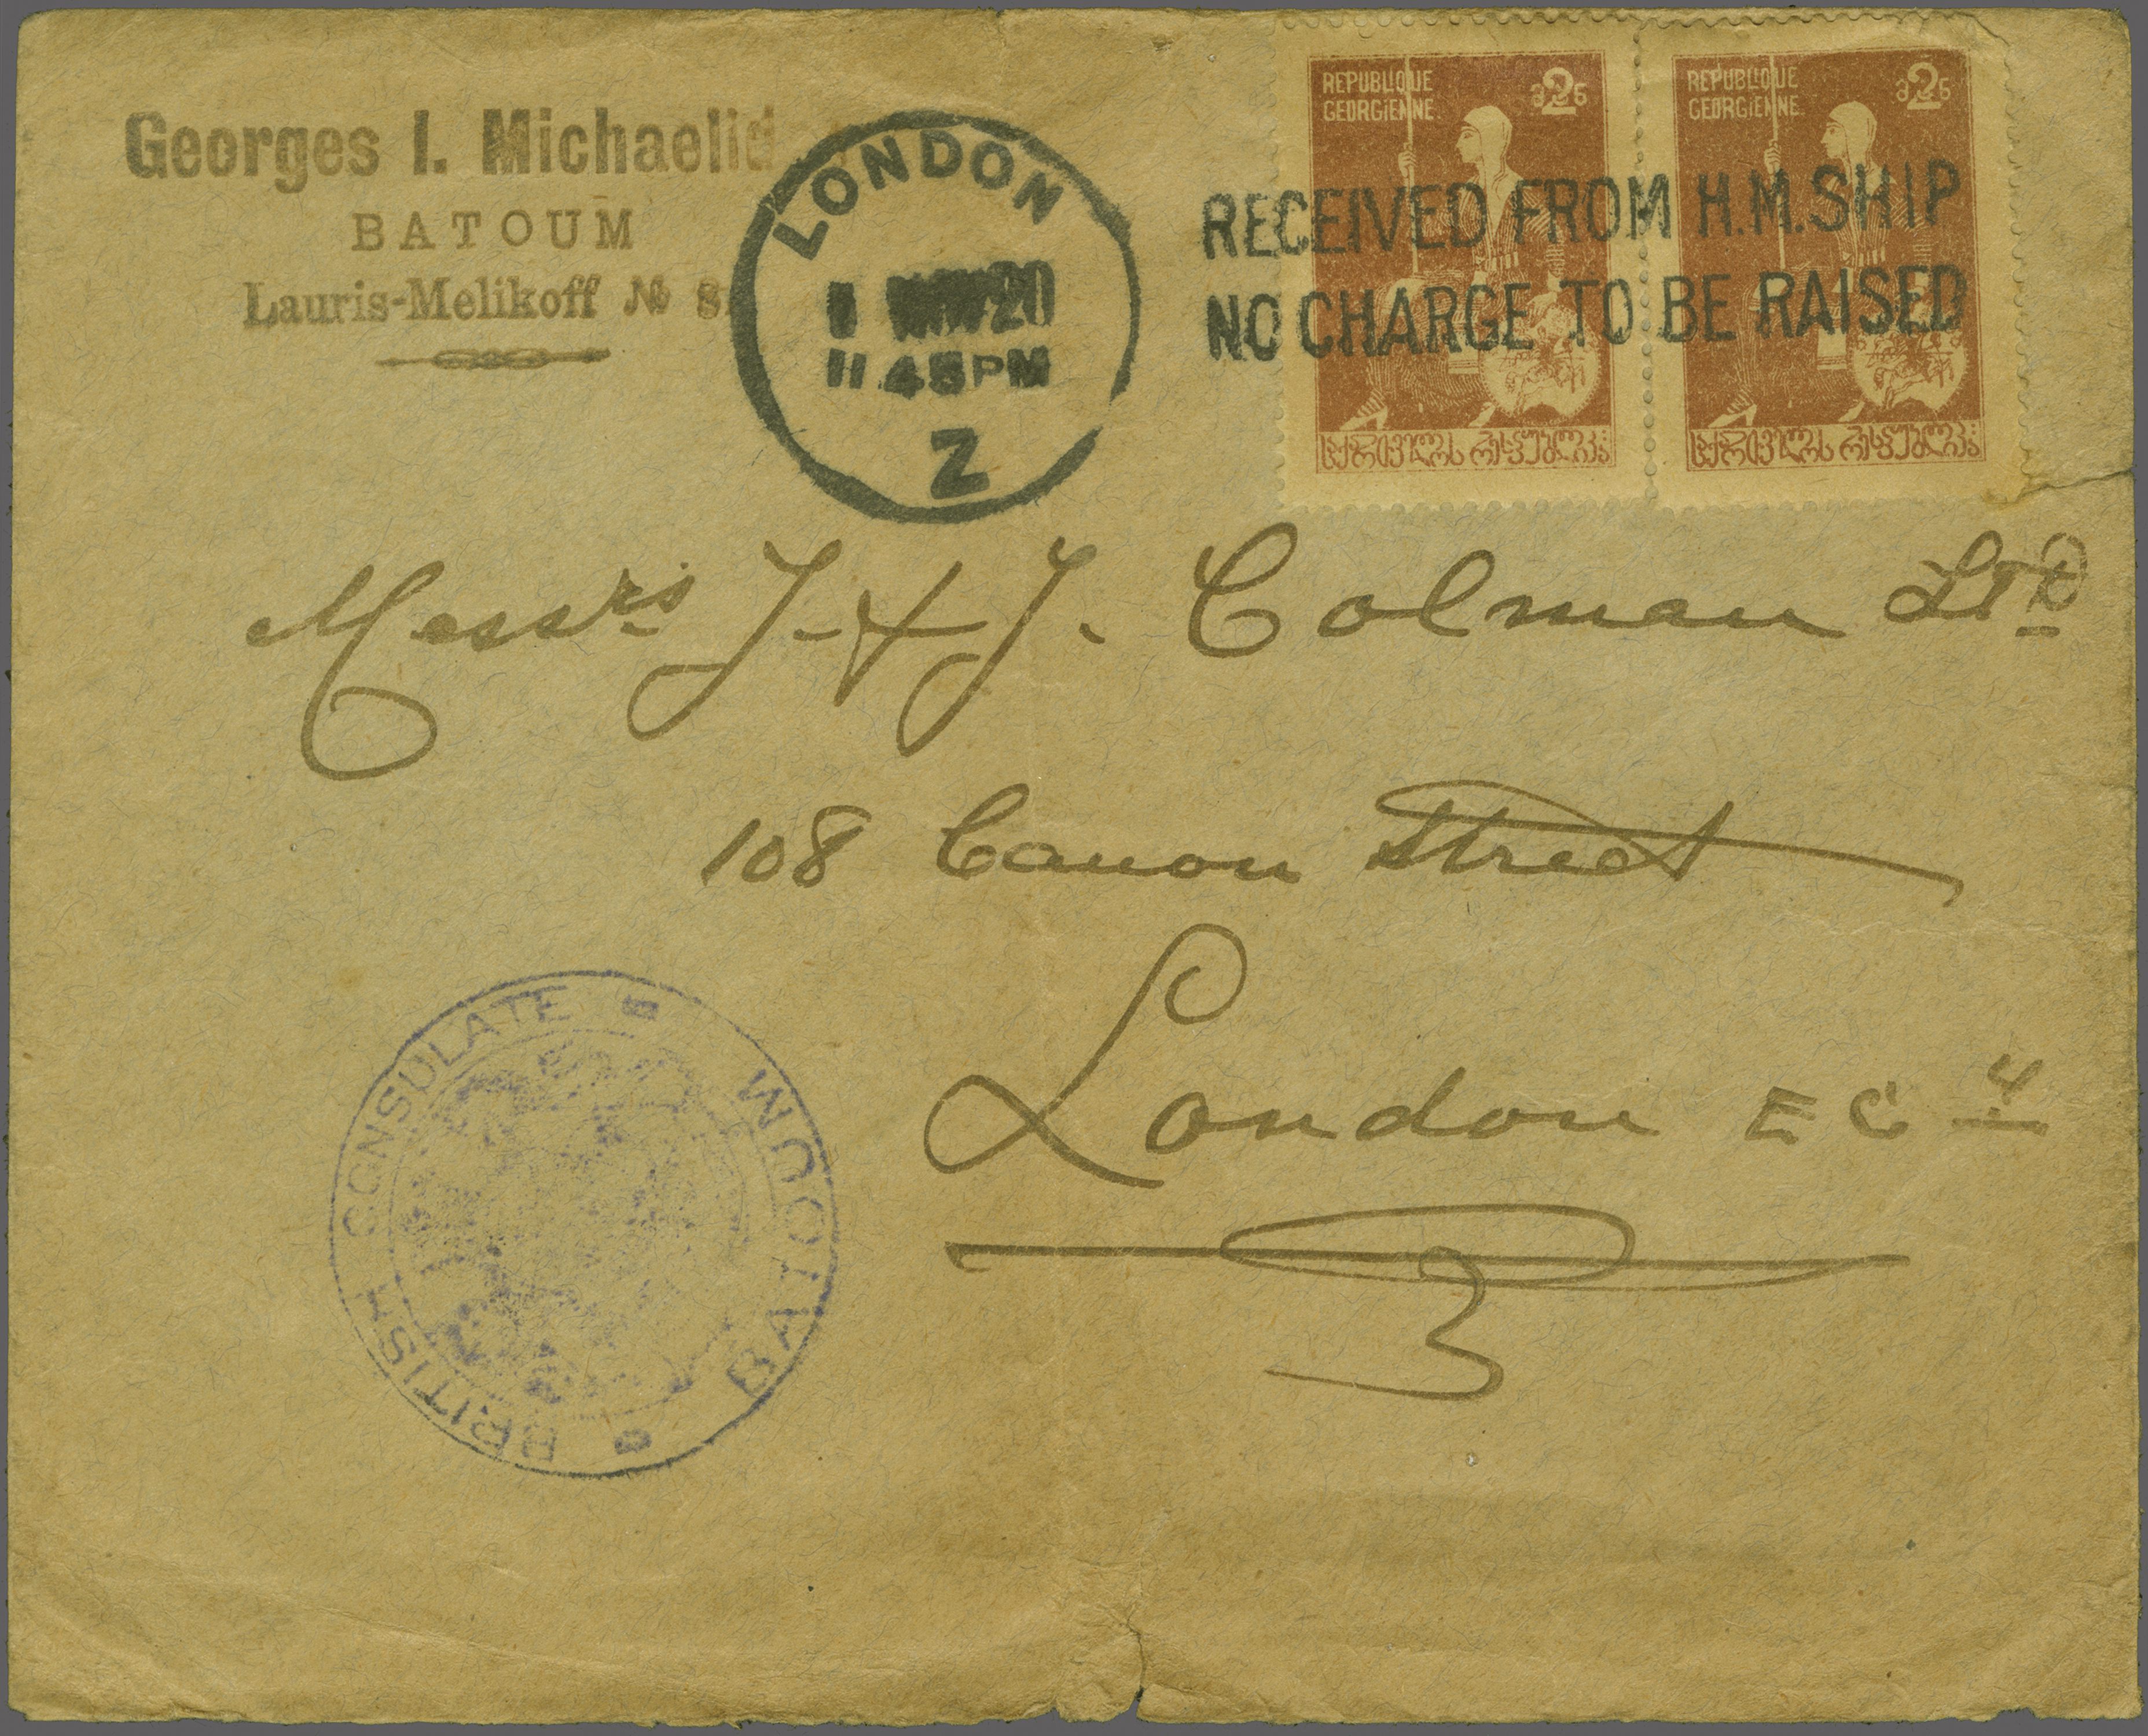 Georges I. Michaelid
BATOUM
Lauris-Melikoff № 8
LONDON
20
11.45PM
Z
REPUBLIQUE
GEORGIENNE.
2
საქართველოს რესპუბლიკა
REPUBLIQUE
GEORGIENNE.
2
საქართველოს რესპუბლიკა
RECEIVED FROM H.M.SHIP
NO CHARGE TO BE RAISED
Messrs J. & J. Colman LTD
108 Canon Street
London EC 4
BRITISH CONSULATE
BATOUM